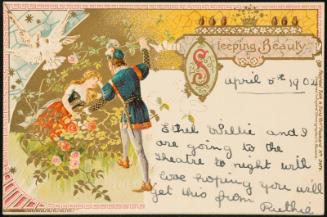 Sleeping Beauty.
April 5th 1902
Ethel Willie and I
are going to the
theatre to night with
love hoping you will
get this from
Ruthie